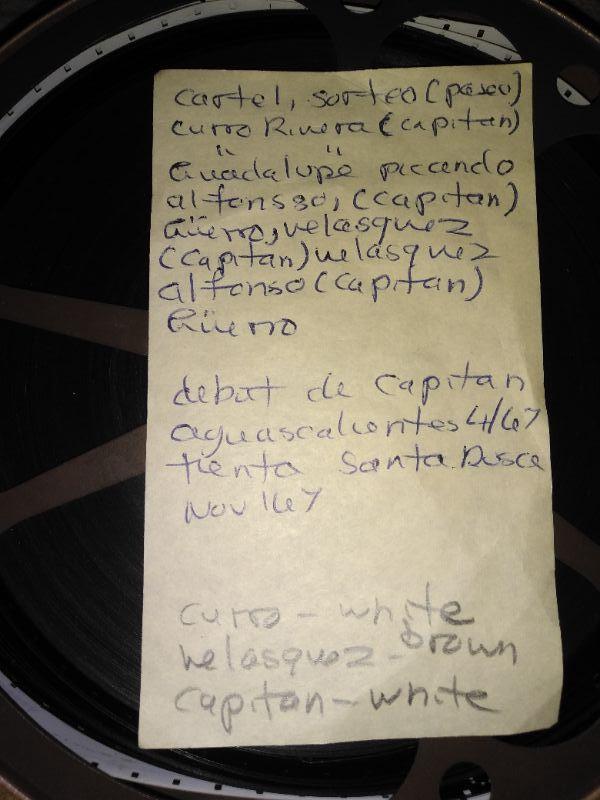 cartel, sorteo (paseo)
curro Rivera (capitan)
" "
Guadalupe piccando
alfonsso, (capitan)
Güerro, velasquez
(capitan) velasquez
alfonso (capitan)
Güerro
debut de capitan
aguascalientes 4/67
tienta Santa Rosa
Nov 67
curro - white
velasquez - brown
capitan - white